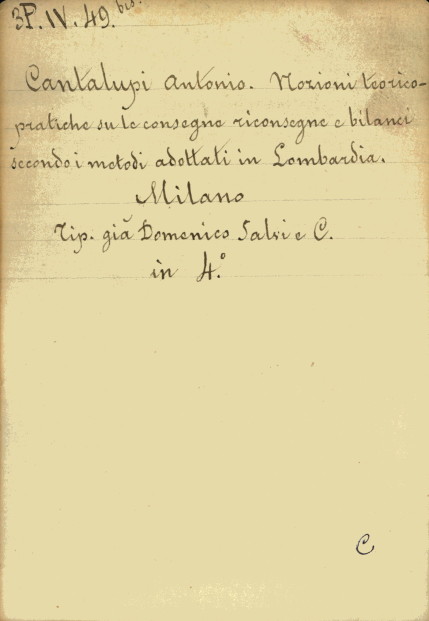 3P.IV.49. bis.
Cantalupi Antonio. Nozioni teorico-
pratiche su le consegne riconsegne e bilanci
secondo i metodi adottati in Lombardia.
Milano
Tip. già Domenico Salvi e C.
in 4.º
C